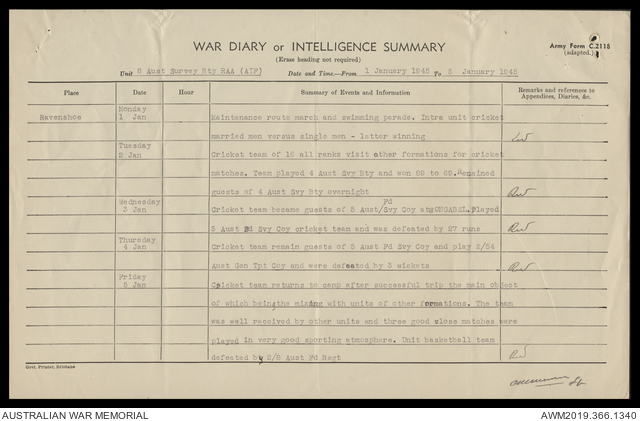 WAR DIARY or INTELLIGENCE SUMMARY
(Erase heading not required)
Army Form C.2118
(adapted.)
Unit 8 Aust Survey Bty RAA (AIF) Date and Time—From 1 January 1945 To 5 January 1945
Place Date Hour Summary of Events and Information Remarks and references to Appendices, Diaries, &c.
Ravenshoe
Monday
1 Jan
Maintenance route march and swimming parade. Intra unit cricket
married men versus single men - latter winning
Tuesday
2 Jan
Cricket team of 18 all ranks visit other formations for cricket
matches. Team played 4 Aust Svy Bty and won 89 to 69. Remained
guests of 4 Aust Svy Bty overnight
Wednesday
3 Jan
Cricket team became guests of 5 Aust/Fd Svy Coy at Played
5 Aust Fd Svy Coy cricket team and was defeated by 27 runs
Thursday
4 Jan
Cricket team remain guests of 5 Aust Fd Svy Coy and play 2/54
Aust Gen Tpt Coy and were defeated by 3 wickets
Friday
5 Jan
Cricket team returns to camp after successful trip the main object
of which being the mixing with units of other formations. The team
was well received by other units and three good close matches were
played in very good sporting atmosphere. Unit basketball team
defeated by 2/8 Aust Fd Regt
Govt. Printer, Brisbane
AUSTRALIAN WAR MEMORIAL
AWM2019.366.1340